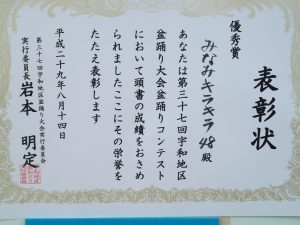 表彰状
優秀賞
みなみキラキラ48殿
あなたは第三十七回宇和地区
盆踊り大会盆踊りコンテスト
において頭書の成績をおさめ
られましたここにその栄誉を
たたえ表彰します
平成二十九年八月十四日
第三十七回宇和地区盆踊り大会実行委員会
実行委員長 岩本 明定